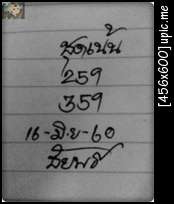 ชุดเน้น
259
359
16-มิ.ย-60
[456x600] upic.me